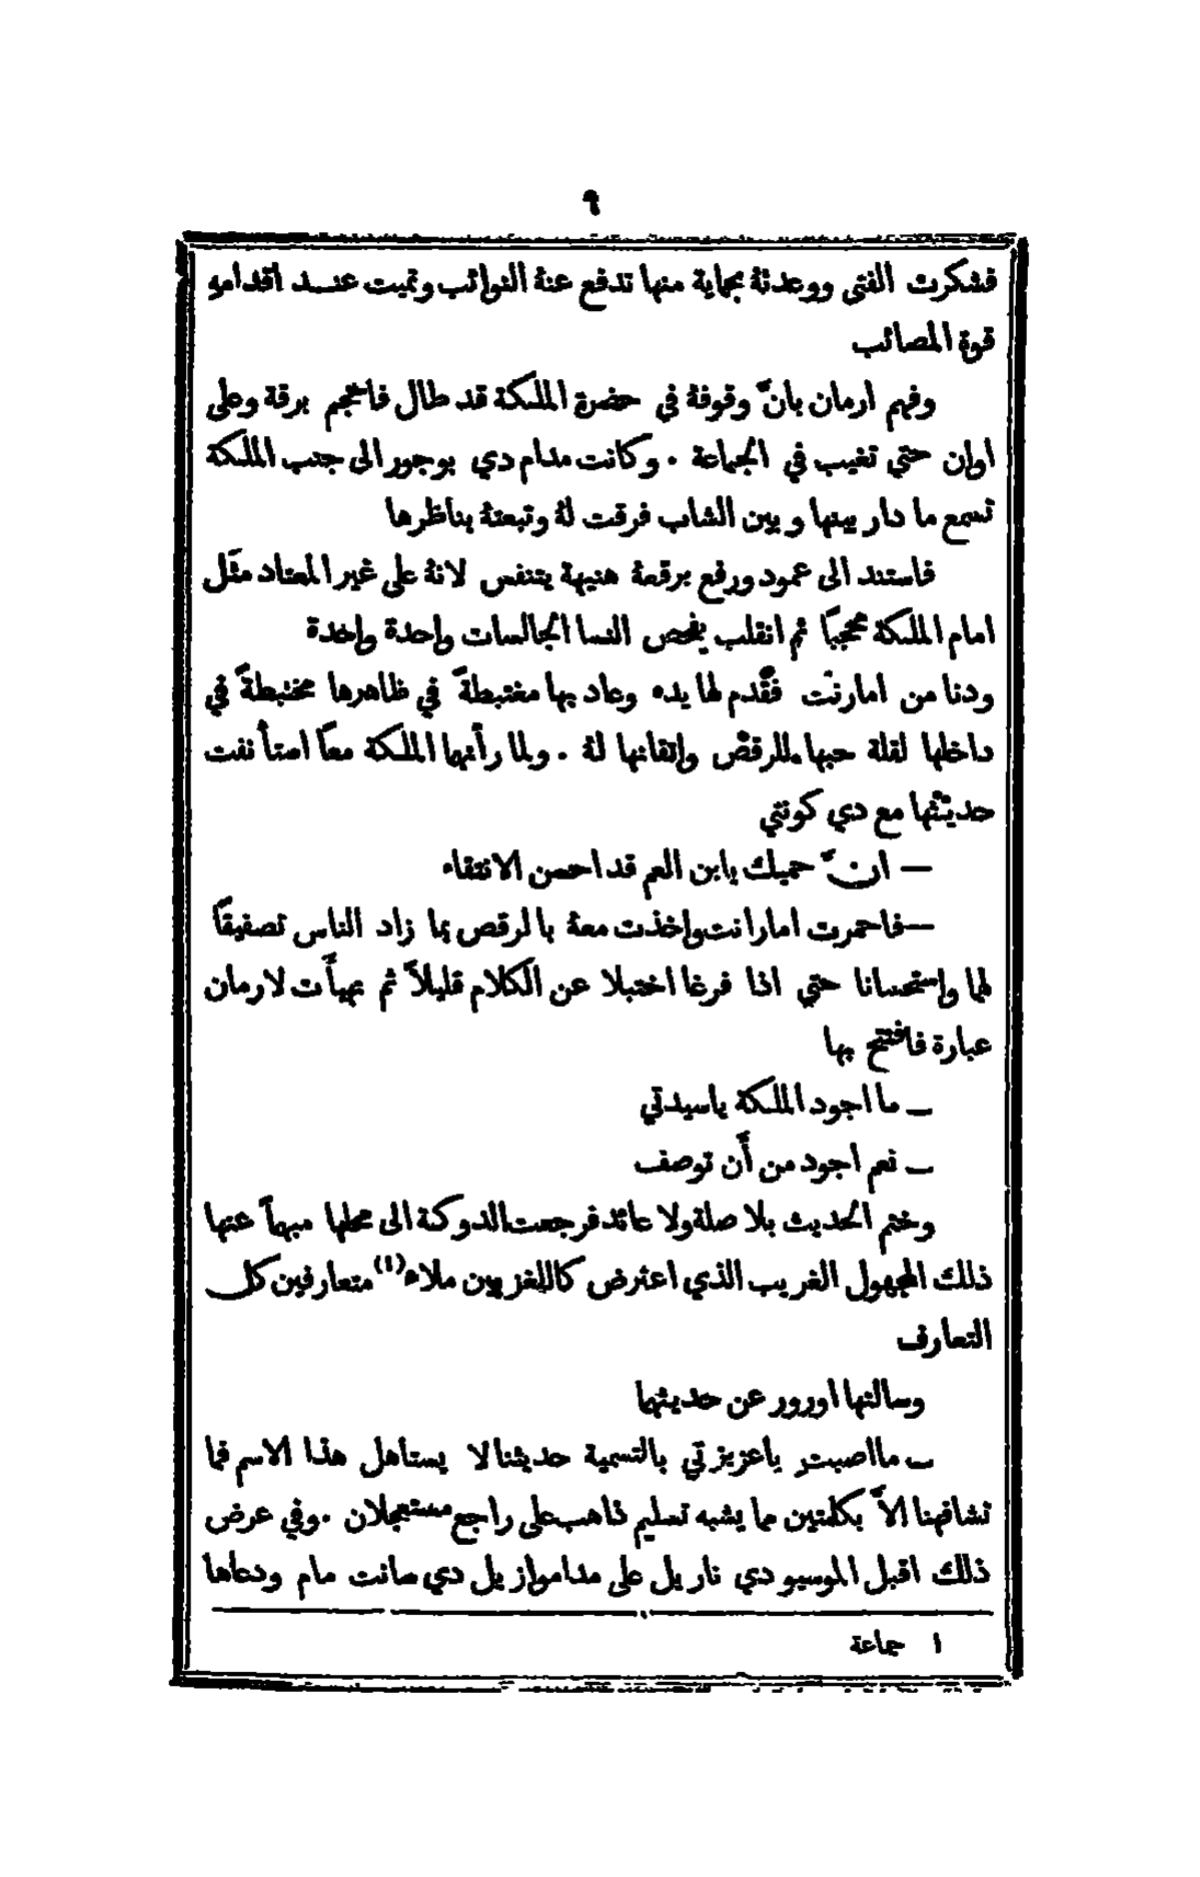 ٩
فشكرت الفتى ووعدتهُ بحماية منها تدفع عنهُ النوائب وتميت عنــد اقدامهِ
قوة المصائب
وفهم ارمان بانّ وقوفهُ في حضرة الملكة قد طال فاحجم برقة وعلى
اوان حتي تغيب في الجماعة . وكانت مدام دي بوجور الى جنب الملكة
تسمع ما دار بينها وبين الشاب فرقت لهُ وتبعتهُ بناظرها
فاستند الى عمود ورفع برقعهُ هنيهة يتنفس لانهُ على غير المعتاد مثَل
امام الملكة محجبًا ثم انقلب يفحص النسا الجالسات واحدة واحدة
ودنا من امارنت فقَّدم لها يده وعاد بها مغتبطةً في ظاهرها مختبطةً في
داخلها لقلة حبها للرقص واتقانها لهُ . ولما رأتها الملكة معًا استأنفت
حديثها مع دي كونتي
— انّ حميك يابن العم قد احسن الانتقاء
—فاحمرت امارانت واخذت معهُ بالرقص بما زاد الناس تصفيقًا
لهما واستحسانا حتي اذا فرغا اختبلا عن الكلام قليلاً ثم تهيأت لارمان
عبارة فافتتح بها
— ما اجود الملكة ياسيدتي
— نعم اجود من أن توصف
وختم الحديث بلا صلة ولا عائد فرجعت الدوكة الى محلها مبهماً عنها
ذلك المجهول الغريب الذي اعترض كاللغز بين ملاء(١) متعارفين كل
التعارف
وسالتها اورور عن حديثهما
— مااصبتِ ياعزيزتي بالتسمية حديثنا لا يستاهل هذا الاسم فما
تشافهنا الاّ بكلمتين مما يشبه تسليم ذاهب على راجع مستعجلان . وفي عرض
ذلك اقبل الموسيو دي ناريل على مداموازيل دي سانت مام ودعاها
١ جماعة